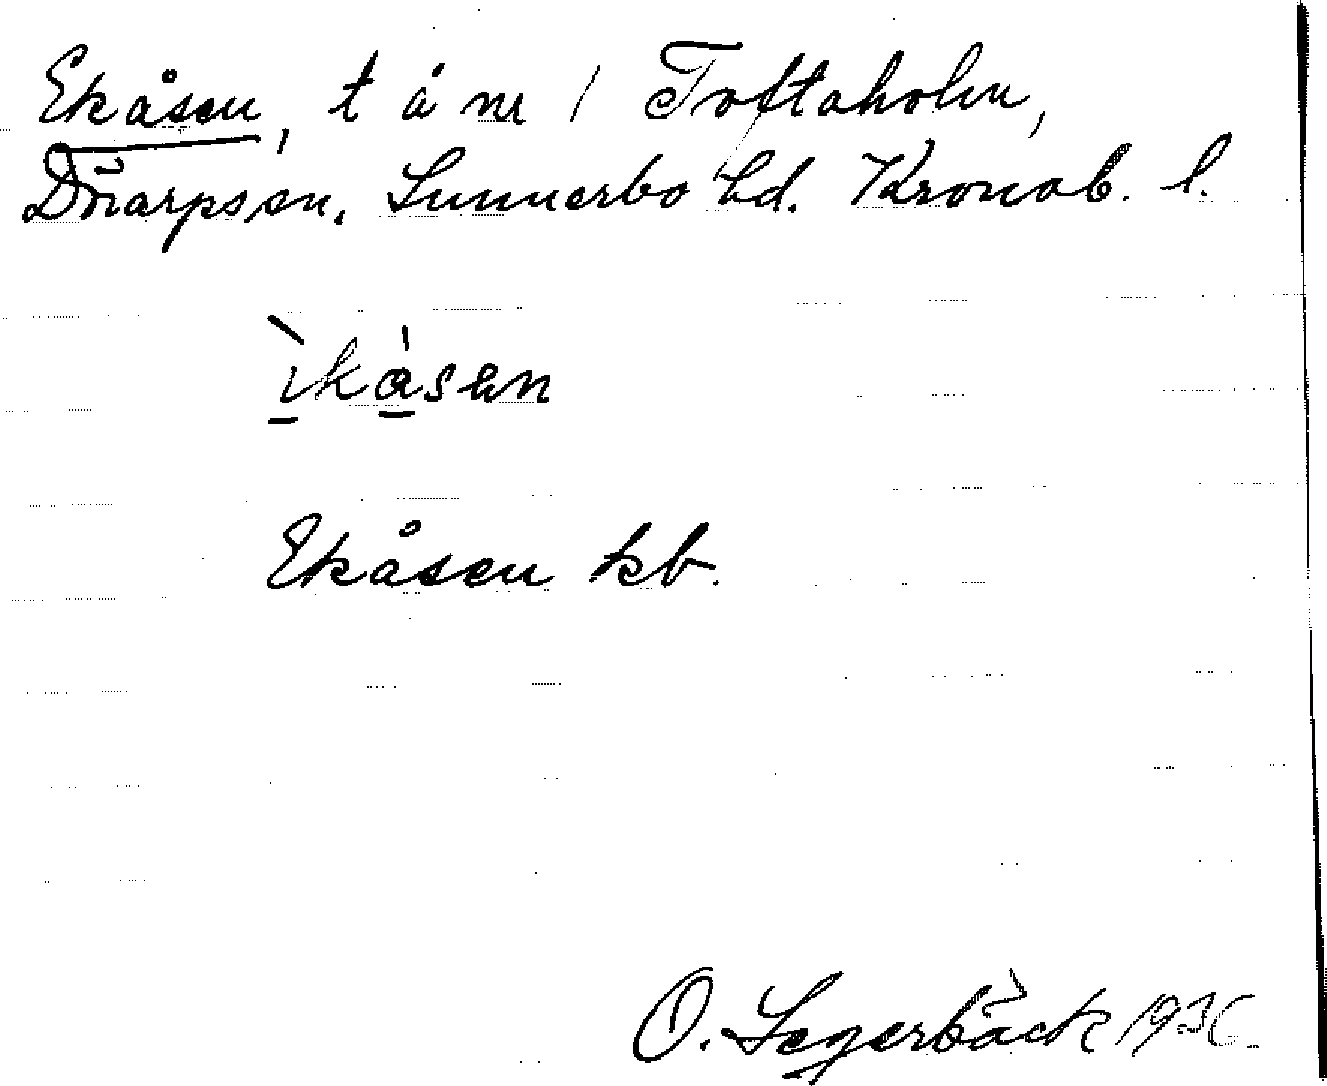 Ekåsen, t å nr 1 Toftaholm,
Dörarps sn. Sunnerbo hd. Kronob. l.
ìkàsen
Ekåsen kb.
O. Segerbäck 1930